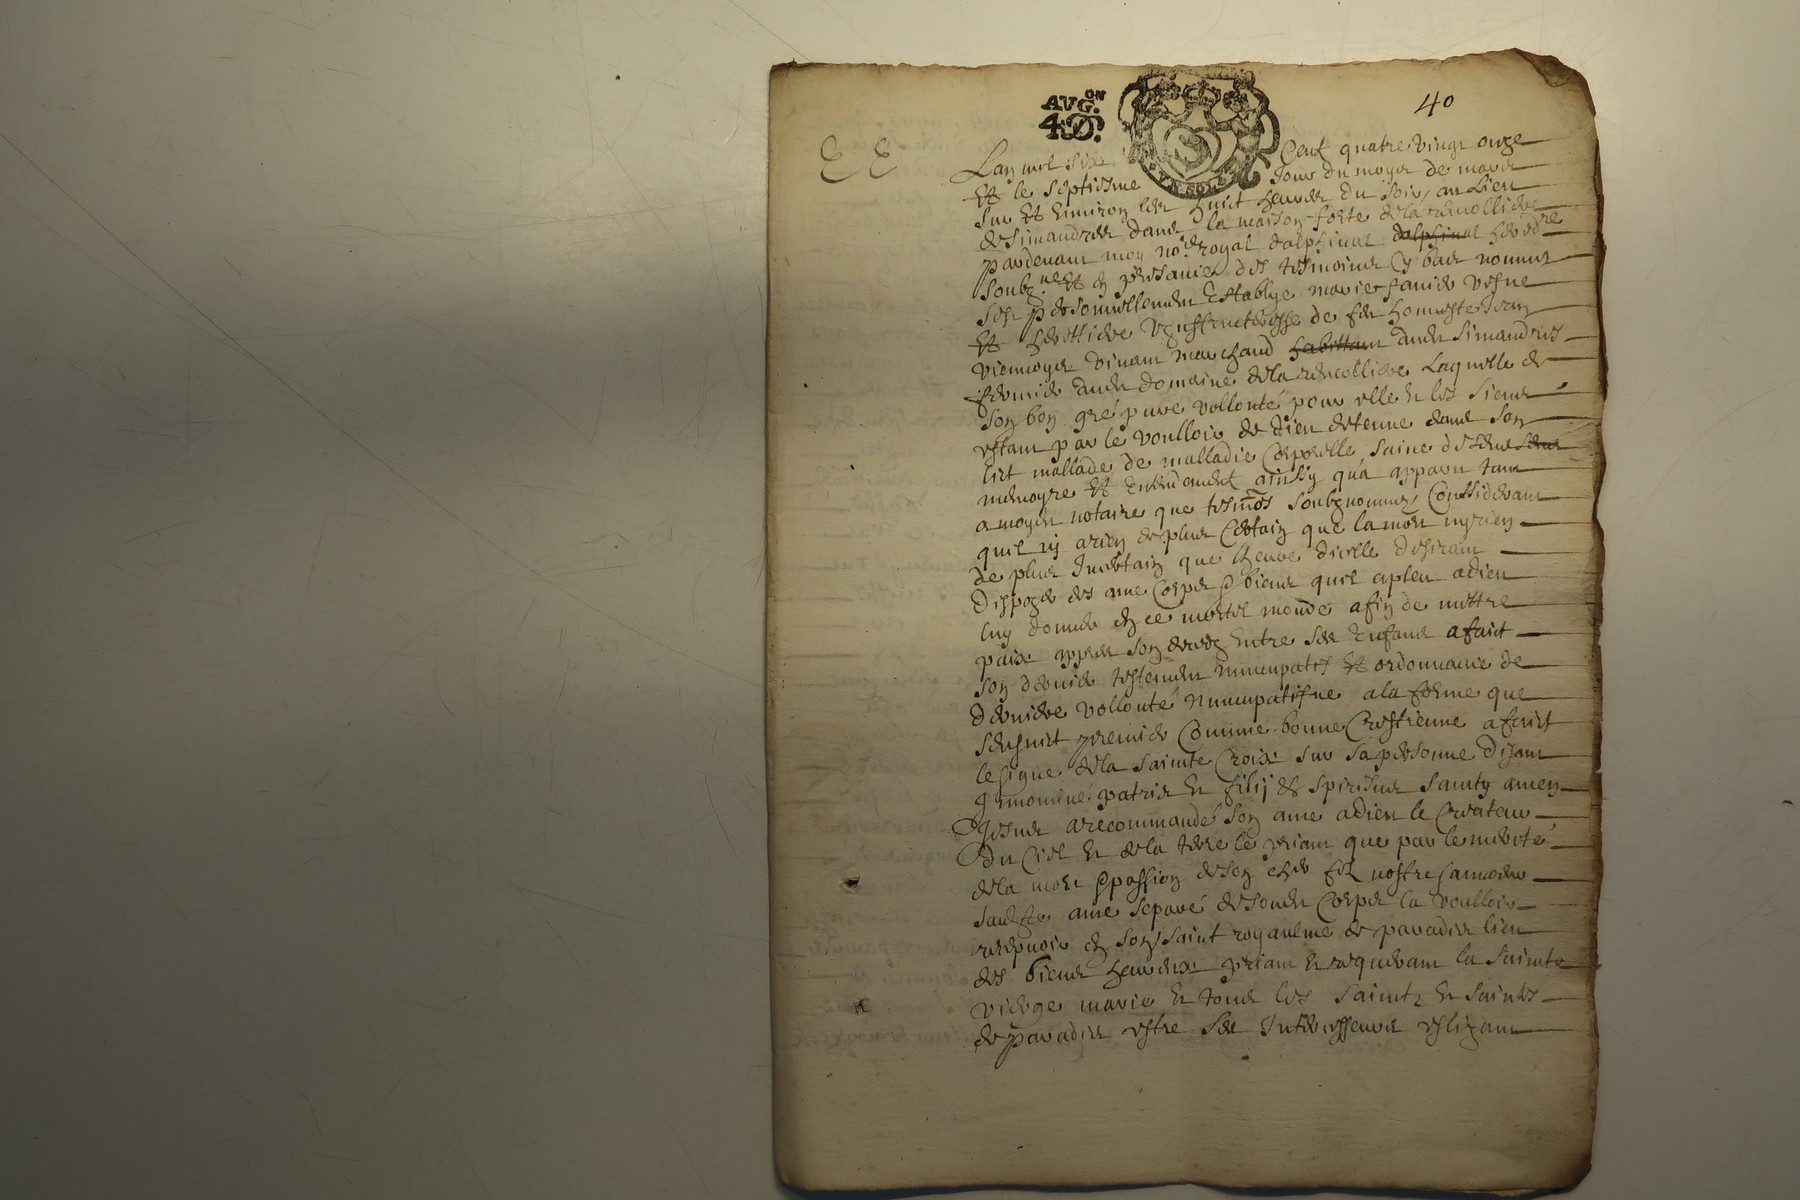 AVG.ON
4.D.
VN SOL
40
E E
Lan mil six Cent quatre vingt onze
Et le septiesme Jour du moys de mars
sur Et Environ les huict heures du soir, au Lieu
de simandres dans la maison forte de la
pardevant moy no.re royal dalphinal dalphinal hered.re
soubz.ne Et en presance des tesmoins Cy bas nommez
sest personnellement Establye marie vefve
Et heretiere de feu honneste Jean
viennoys vivant marchand habittant dans Simandres
fermier dans domaine de la Laquelle de
son bon gré pure vollonté pour elle et les siens
estant par le voulloir de dieu detenue dans son
lict mallade de malladie Corporelle saine de sens sens
memoyre Et Entendement ainsy qua apparu tant
a moydit notaire que tesmoins soubznommez Considerant
quil ny a rien de plus Certain que la mort ny rien
de plus Incertain que lheure dicelle desirant
disposer des ame Corps & biens quil a pleu a dieu
luy donner en ce mortel monde afin de mettre
paix appres son deces Entre ses Enfans a faict
son dernier testement nuncupatif Et ordonnance de
derniere vollonté nuncupatifve a la forme que
sensuict premier Comme bonne Crestienne a faict
le signe de la sainte Croix sur sa personne disant
In nomine patris et filij et spiritus santy amen
Jesus a recommandé son ame a dieu le Createur
du Ciel et de la terre le priant que par le merite
de la mort & passion de son cher fils nostre sauveur
sadite ame separé de sondit Corps la voulloir
recepvoir en son saint royaulme de paradis lieu
des biens heureux priant et requerant la Sainte
vierge marie et tous les saints et saintes
de paradis estre ses Intercesseurs eslizant